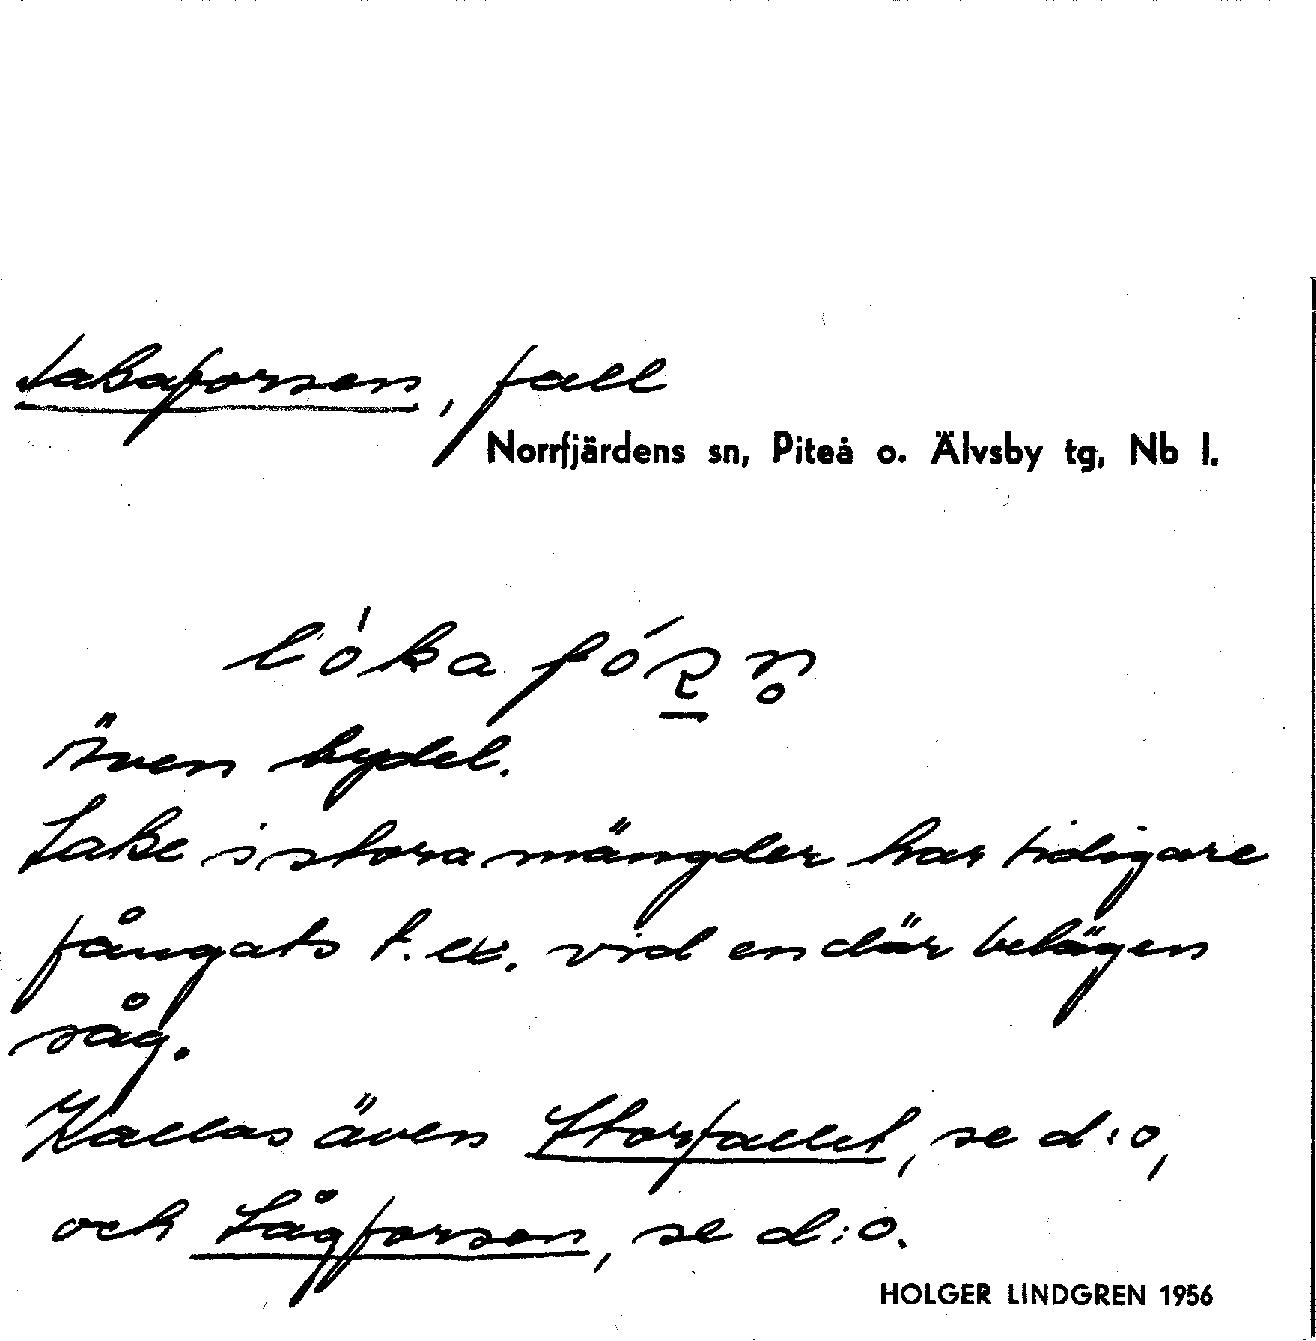 Lakaforsen, fall
Norrfjärdens sn, Piteå o. Älvsby tg, Nb l.
Även bydel.
Lake i stora mängder har tidigare
fångats t. ex. vid en där belägen
såg.
Kallas även Storfallet, se d:o,
och Sågforsen, se d:o.
HOLGER LINDGREN 1956